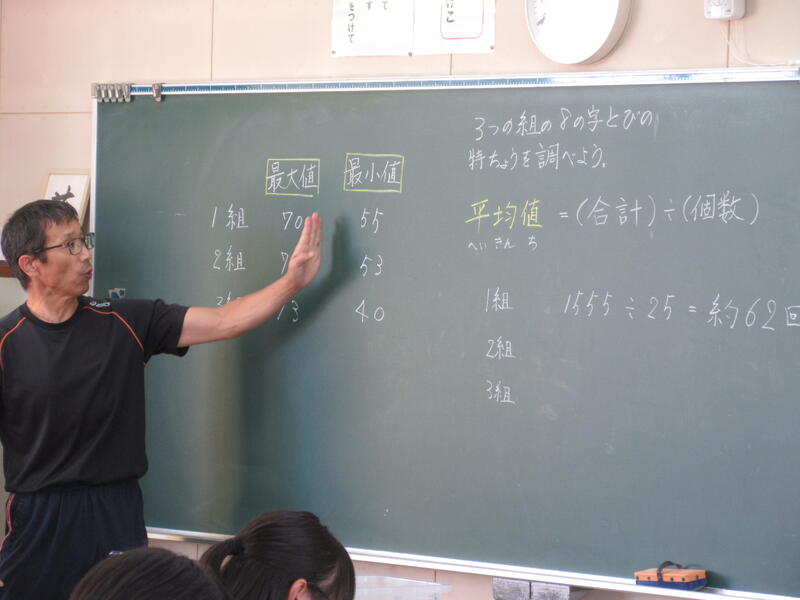 けこ
て
す
をつけて
3つの組の8の字とびの
特ちょうを調べよう。
最大値 最小値
1組 70 55
2組 7 53
3組 73 40
平均値 = (合計) ÷ (個数)
へい きん ち
1組 1555 ÷ 25 = 約62回
2組
3組
asics